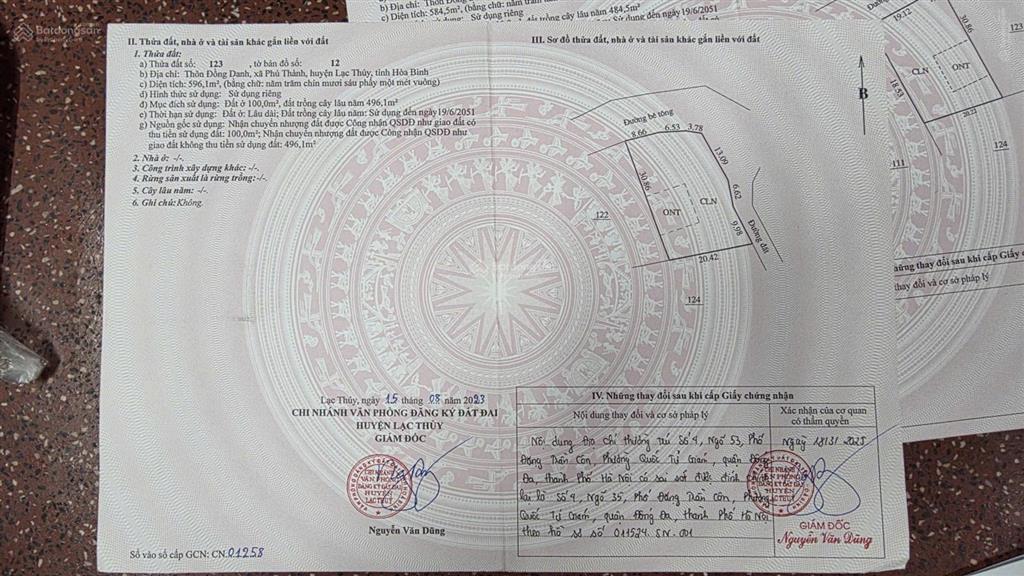 Batdongsan
c) Diện tích: 584,5m², (bằng chữ: năm trăm
Sử dụng riêng
đất trồng cây lâu năm 484,5m²
Sử dụng đến ngày 19/6/2051
II. Thửa đất, nhà ở và tài sản khác gắn liền với đất
1. Thửa đất:
a) Thửa đất số: 123 , tờ bản đồ số: 12
b) Địa chỉ: Thôn Đồng Danh, xã Phú Thành, huyện Lạc Thủy, tỉnh Hòa Bình
c) Diện tích: 596,1m², (bằng chữ: năm trăm chín mươi sáu phẩy một mét vuông)
d) Hình thức sử dụng: Sử dụng riêng
đ) Mục đích sử dụng: Đất ở 100,0m², đất trồng cây lâu năm 496,1m²
e) Thời hạn sử dụng: Đất ở: Lâu dài; Đất trồng cây lâu năm: Sử dụng đến ngày 19/6/2051
g) Nguồn gốc sử dụng: Nhận chuyển nhượng đất được Công nhận QSDĐ như giao đất có
thu tiền sử dụng đất: 100,0m²; Nhận chuyển nhượng đất được Công nhận QSDĐ như
giao đất không thu tiền sử dụng đất: 496,1m²
2. Nhà ở: -/-.
3. Công trình xây dựng khác: -/-.
4. Rừng sản xuất là rừng trồng: -/-.
5. Cây lâu năm: -/-.
6. Ghi chú: Không.
III. Sơ đồ thửa đất, nhà ở và tài sản khác gắn liền với đất
B
Đường bê tông
8.66 6.53 3.78
13.09
30.86
6.62
CLN
ONT
9.98
Đường đất
122
20.42
124
19.12
30.86
123
CLN
ONT
18.53
20.22
124
111
Những thay đổi sau khi cấp Giấy
thay đổi và cơ sở pháp lý
Lạc Thủy, ngày 15 tháng 08 năm 2023
CHI NHÁNH VĂN PHÒNG ĐĂNG KÝ ĐẤT ĐAI
HUYỆN LẠC THỦY
GIÁM ĐỐC
CHI NHÁNH
VĂN PHÒNG
ĐĂNG KÝ ĐẤT ĐAI
HUYỆN
LẠC THỦY
Nguyễn Văn Dũng
Số vào sổ cấp GCN: CN.01258
IV. Những thay đổi sau khi cấp Giấy chứng nhận
Nội dung thay đổi và cơ sở pháp lý
Xác nhận của cơ quan
có thẩm quyền
Nội dung Địa chỉ thường trú Số 4, Ngõ 53, Phố
Đặng Trần Côn, Phường Quốc Tử Giám, quận Đống
Đa, thành Phố Hà Nội có sai sót được đính chính
lại là Số 4, Ngõ 35, Phố Đặng Trần Côn, Phường
Quốc Tử Giám, quận Đống Đa, thành Phố Hà Nội
theo hồ sơ số 011524.SN.001
GIÁM ĐỐC
Nguyễn Văn Dũng